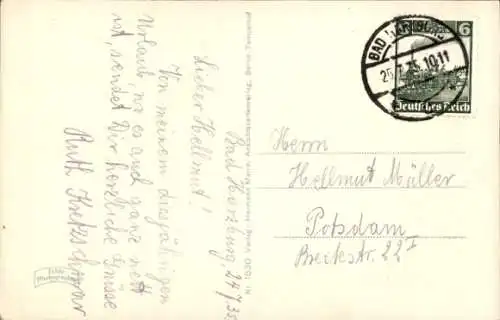 Bad Harzburg, 24.7.35
Lieber Hellmut!
Von meinem diesjährigen
Urlaub, wo es auch ganz nett
ist, sendet Dir herzliche Grüsse
Ruth Kretzschmar
BAD HARZBURG
25.7.35.10-11
6
Deutsches Reich
Herrn
Hellmut Müller
Potsdam
Breitestr. 22 I